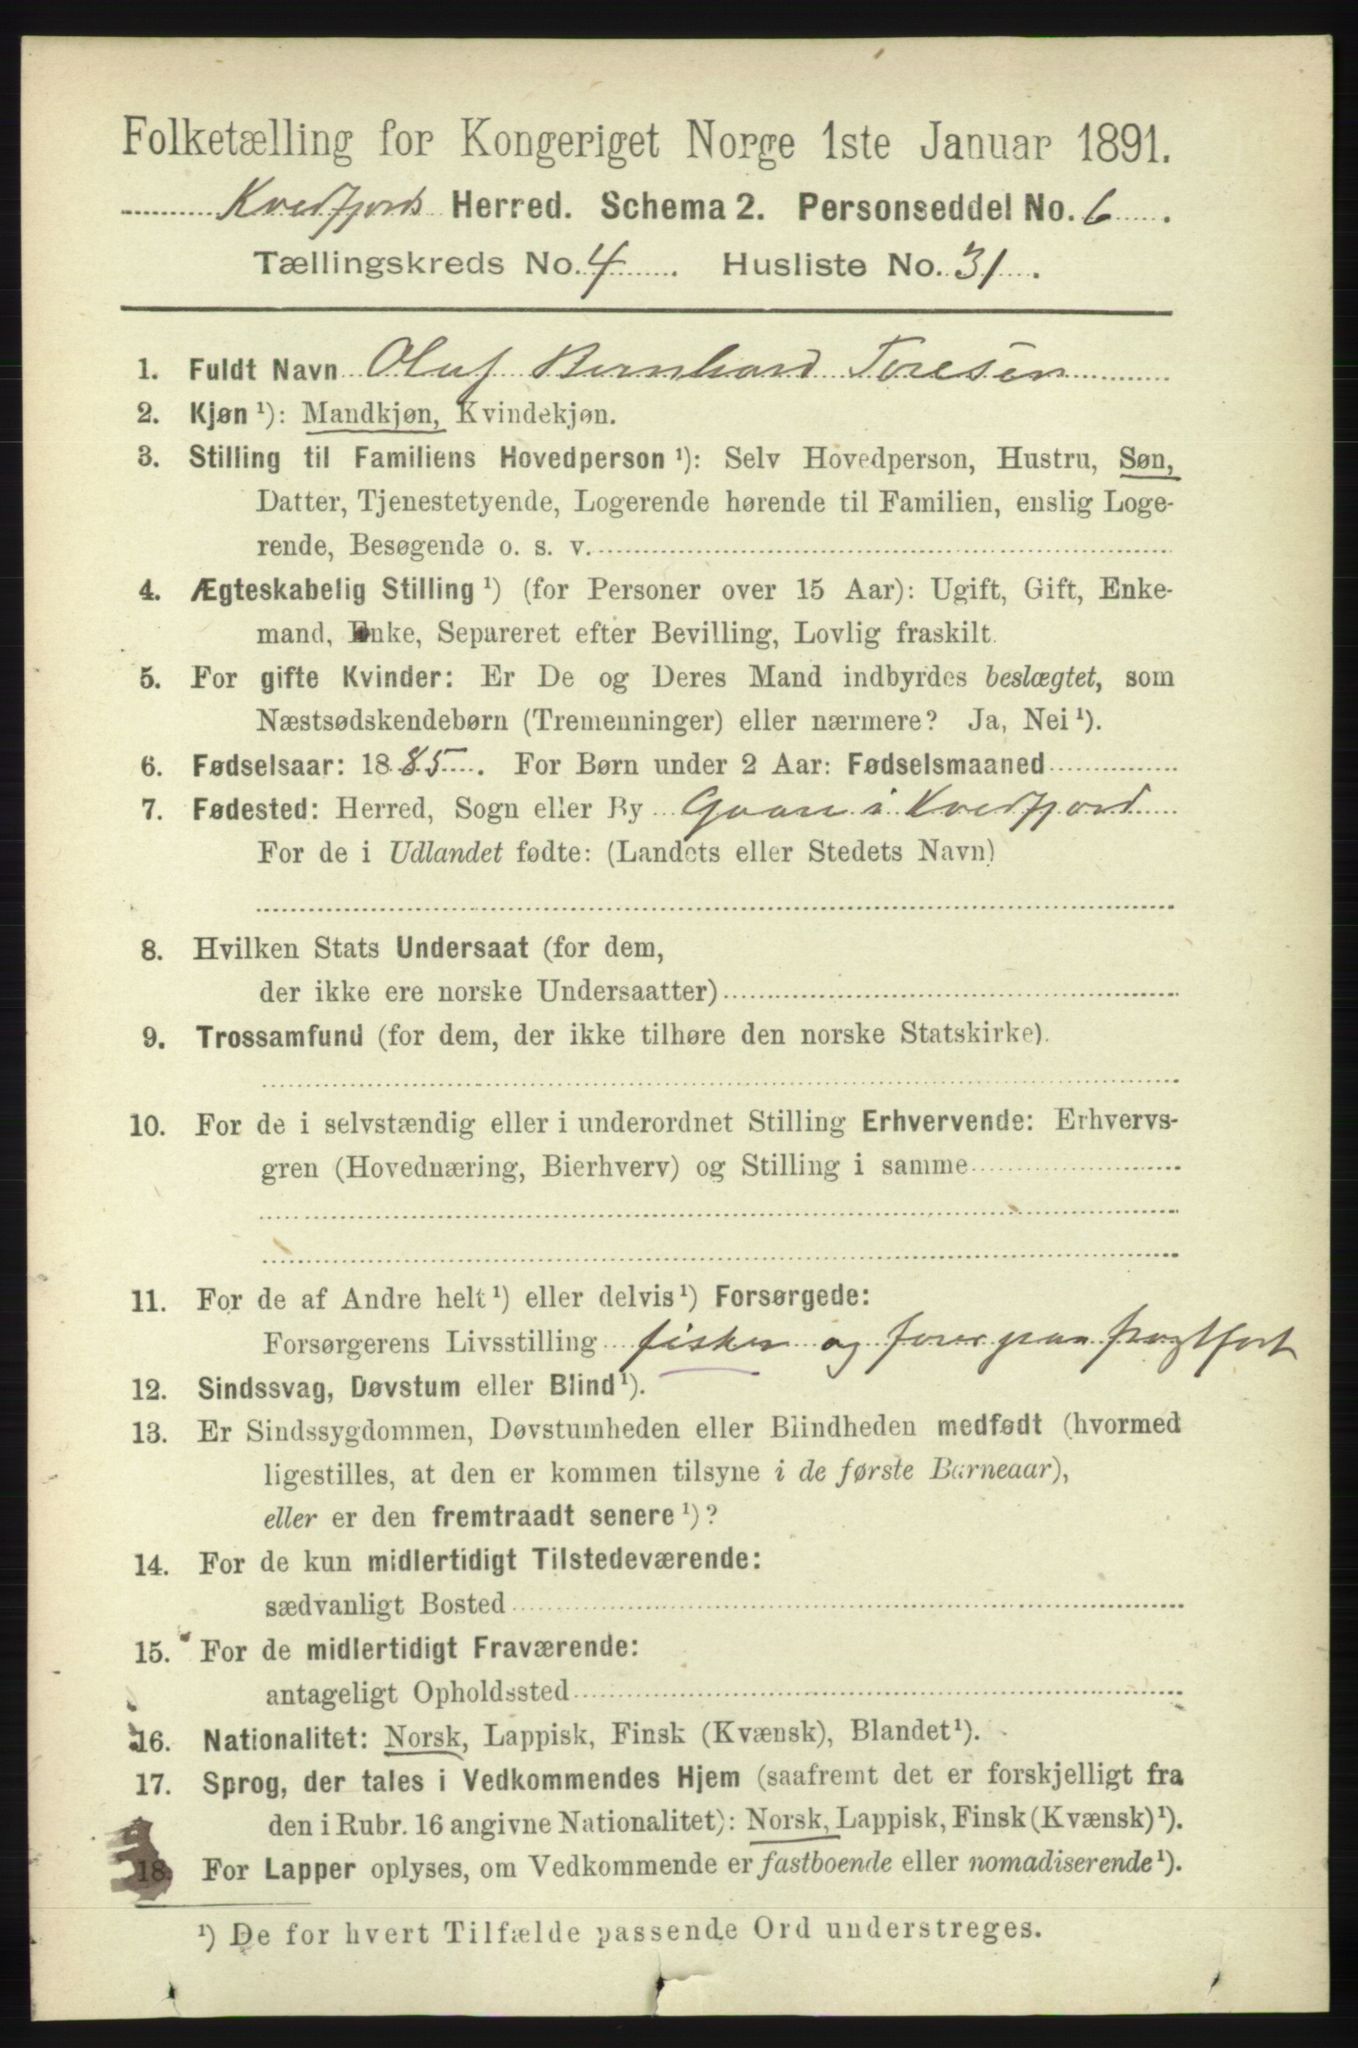 Folketælling for Kongeriget Norge 1ste Januar 1891.
Kvedfjords Herred. Schema 2. Personseddel No. 6.
Tællingskreds No. 4. Husliste No. 31.
1. Fuldt Navn Oluf Bernhard Toresen
2. Kjøn ¹): Mandkjøn, Kvindekjøn.
3. Stilling til Familiens Hovedperson ¹): Selv Hovedperson, Hustru, Søn,
Datter, Tjenestetyende, Logerende hørende til Familien, enslig Loge-
rende, Besøgende o. s. v.
4. Ægteskabelig Stilling ¹) (for Personer over 15 Aar): Ugift, Gift, Enke-
mand, Enke, Separeret efter Bevilling, Lovlig fraskilt.
5. For gifte Kvinder: Er De og Deres Mand indbyrdes beslægtet, som
Næstsødskendebørn (Tremenninger) eller nærmere? Ja, Nei ¹).
6. Fødselsaar: 1885. For Børn under 2 Aar: Fødselsmaaned
7. Fødested: Herred, Sogn eller By Gaare i Kvedfjord
For de i Udlandet fødte: (Landets eller Stedets Navn)
8. Hvilken Stats Undersaat (for dem,
der ikke ere norske Undersaatter)
9. Trossamfund (for dem, der ikke tilhøre den norske Statskirke).
10. For de i selvstændig eller i underordnet Stilling Erhvervende: Erhvervs-
gren (Hovednæring, Bierhverv) og Stilling i samme
11. For de af Andre helt ¹) eller delvis ¹) Forsørgede:
Forsørgerens Livsstilling fisker og farer paa fragtfart
12. Sindssvag, Døvstum eller Blind ¹).
13. Er Sindssygdommen, Døvstumheden eller Blindheden medfødt (hvormed
ligestilles, at den er kommen tilsyne i de første Barneaar),
eller er den fremtraadt senere ¹)?
14. For de kun midlertidigt Tilstedeværende:
sædvanligt Bosted
15. For de midlertidigt Fraværende:
antageligt Opholdssted
16. Nationalitet: Norsk, Lappisk, Finsk (Kvænsk), Blandet ¹).
17. Sprog, der tales i Vedkommendes Hjem (saafremt det er forskjelligt fra
den i Rubr. 16 angivne Nationalitet): Norsk, Lappisk, Finsk (Kvænsk) ¹).
18. For Lapper oplyses, om Vedkommende er fastboende eller nomadiserende ¹).
¹) De for hvert Tilfælde passende Ord understreges.